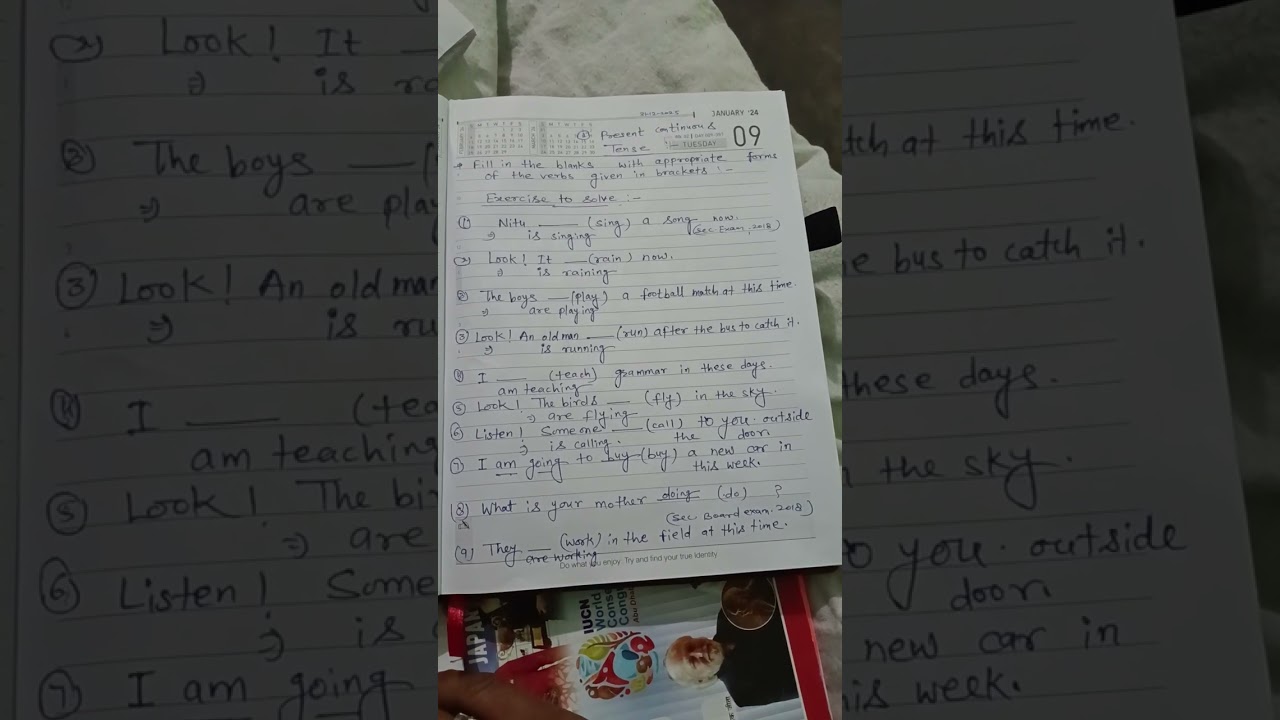 JANUARY '24
09
TUESDAY
Present continuous
Tense
Fill in the blanks with appropriate forms
of the verbs given in brackets :-
Exercise to solve :-
(1) Nitu ____ (sing) a song now.
⇒ is singing (Sec Exam, 2018)
(2) Look! It ___ (rain) now.
⇒ is raining
(2) The boys ___ (play) a football match at this time.
⇒ are playing
(3) Look! An old man ____ (run) after the bus to catch it.
⇒ is running
(4) I ____ (teach) grammar in these days.
am teaching
(5) Look! The birds ___ (fly) in the sky.
⇒ are flying
(6) Listen! Someone ____ (call) to you. outside
⇒ is calling. the door.
(7) I am going to buy (buy) a new car in
this week.
(8) What is your mother doing (do) ?
(Sec. Board exam. 2018)
(9) They ___ (work) in the field at this time.
are working
Do what you enjoy: Try and find your true identity
JAPAN
IUCN
World
Conse
Cong
Abu Dha